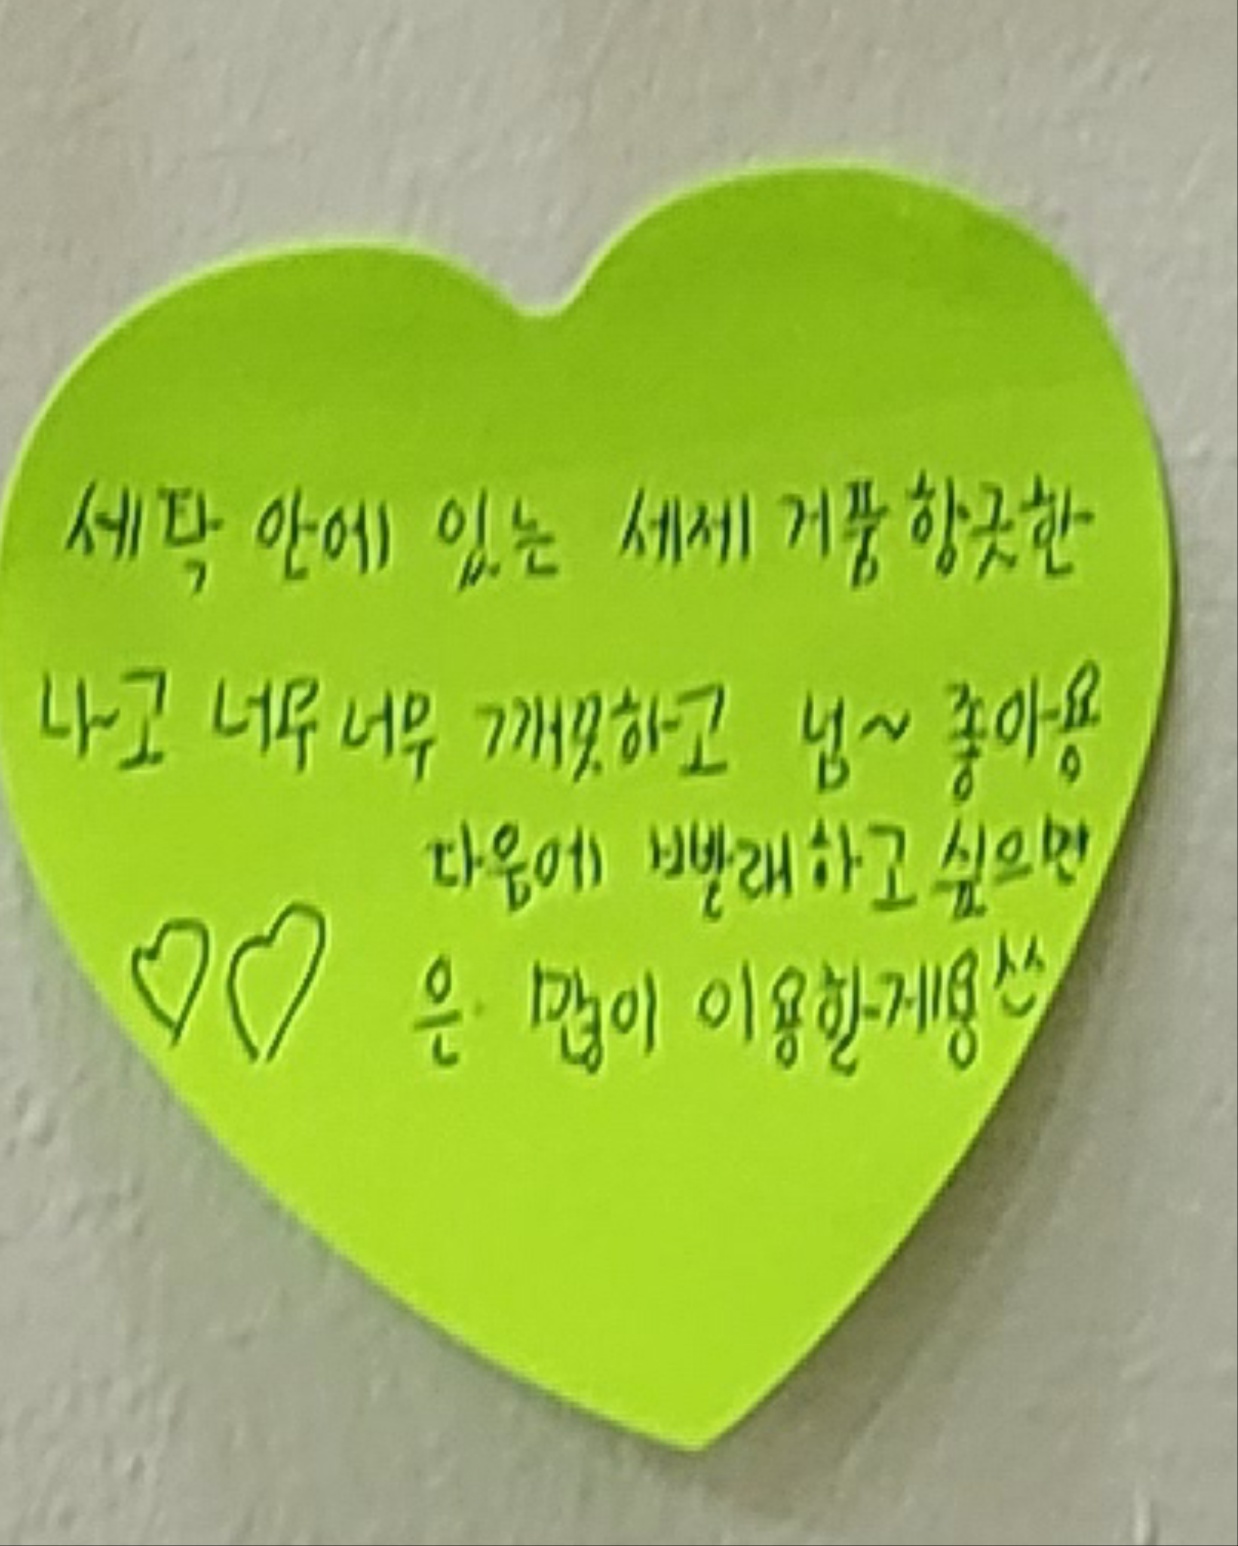 세탁 안에 있는 세제 거품향긋한
나고 너무너무 깨끗하고 넘~ 좋아용
다음에 빨래하고 싶으면
은 많이 이용할게용^^